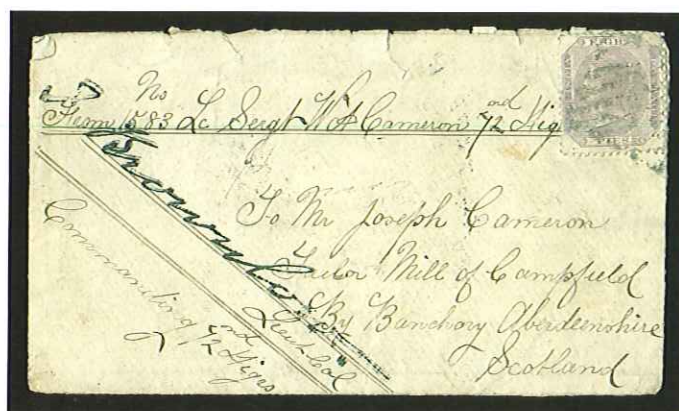 No
From 1583 Lc Sergt Wm Cameron 72nd Higrs
To Mr Joseph Cameron
Tailor Mill of Campfield
By Banchory Aberdeenshire
Scotland
Lieut Col
Commanding 72nd Higrs